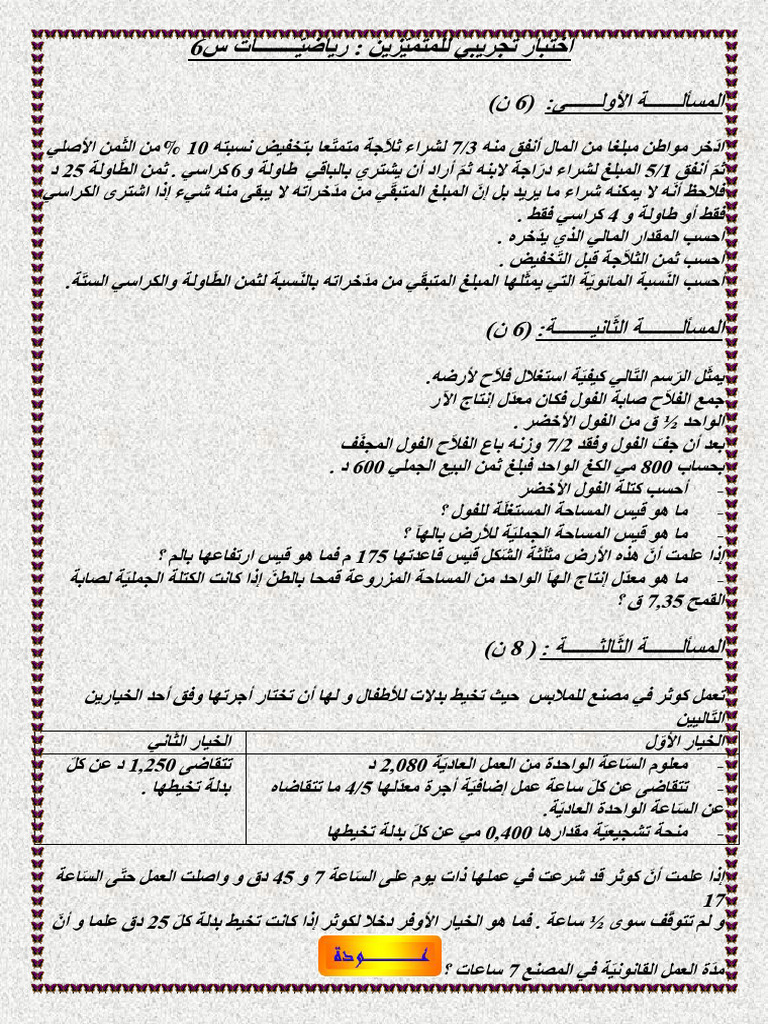 اختبار تجريبي للمتميّزين : رياضيّـــــــات س6
المسألــــــة الأولــــــى: (6 ن)
ادّخر مواطن مبلغا من المال أنفق منه 7/3 لشراء ثلاّجة متمتّعا بتخفيض نسبته 10 % من الثّمن الأصلي
ثمّ أنفق 5/1 المبلغ لشراء درّاجة لابنه ثمّ أراد أن يشتري بالباقي طاولة و 6 كراسي . ثمن الطّاولة 25 د
فلاحظ أنّه لا يمكنه شراء ما يريد بل إنّ المبلغ المتبقّي من مدّخراته لا يبقى منه شيء إذا اشترى الكراسي
فقط أو طاولة و 4 كراسي فقط .
أحسب المقدار المالي الذي يدّخره .
أحسب ثمن الثلاّجة قبل التّخفيض .
أحسب النّسبة المائويّة التي يمثّلها المبلغ المتبقّي من مدّخراته بالنّسبة لثمن الطّاولة والكراسي الستّة.
المسألــــــة الثّانيــــــة: (6 ن)
يمثّل الرّسم التّالي كيفيّة استغلال فلاّح لأرضه.
جمع الفلاّح صابة الفول فكان معدّل إنتاج الآر
الواحد ½ ق من الفول الأخضر .
بعد أن جفّ الفول وفقد 7/2 وزنه باع الفلاّح الفول المجفّف
بحساب 800 مي الكغ الواحد فبلغ ثمن البيع الجملي 600 د .
- أحسب كتلة الفول الأخضر
- ما هو قيس المساحة المستغلّة للفول ؟
- ما هو قيس المساحة الجمليّة للأرض بالهآ ؟
إذا علمت أنّ هذه الأرض مثلّثة الشّكل قيس قاعدتها 175 م فما هو قيس ارتفاعها بالم ؟
- ما هو معدّل إنتاج الهآ الواحد من المساحة المزروعة قمحا بالطنّ إذا كانت الكتلة الجمليّة لصابة
القمح 7,35 ق ؟
المسألــــــة الثّالثــــــة : ( 8 ن)
تعمل كوثر في مصنع للملابس حيث تخيط بدلات للأطفال و لها أن تختار أجرتها وفق أحد الخيارين
التّاليين
الخيار الأوّل
- معلوم السّاعة الواحدة من العمل العاديّة 2,080 د
- تتقاضى عن كلّ ساعة عمل إضافيّة أجرة معدّلها 4/5 ما تتقاضاه
عن السّاعة الواحدة العاديّة.
- منحة تشجيعيّة مقدارها 0,400 مي عن كلّ بدلة تخيطها
الخيار الثّاني
تتقاضى 1,250 د عن كلّ
بدلة تخيطها .
إذا علمت أنّ كوثر قد شرعت في عملها ذات يوم على السّاعة 7 و 45 دق و واصلت العمل حتّى السّاعة
17
و لم تتوقّف سوى ½ ساعة . فما هو الخيار الأوفر دخلا لكوثر إذا كانت تخيط بدلة كلّ 25 دق علما و أنّ
عــــودة
مدّة العمل القانونيّة في المصنع 7 ساعات ؟